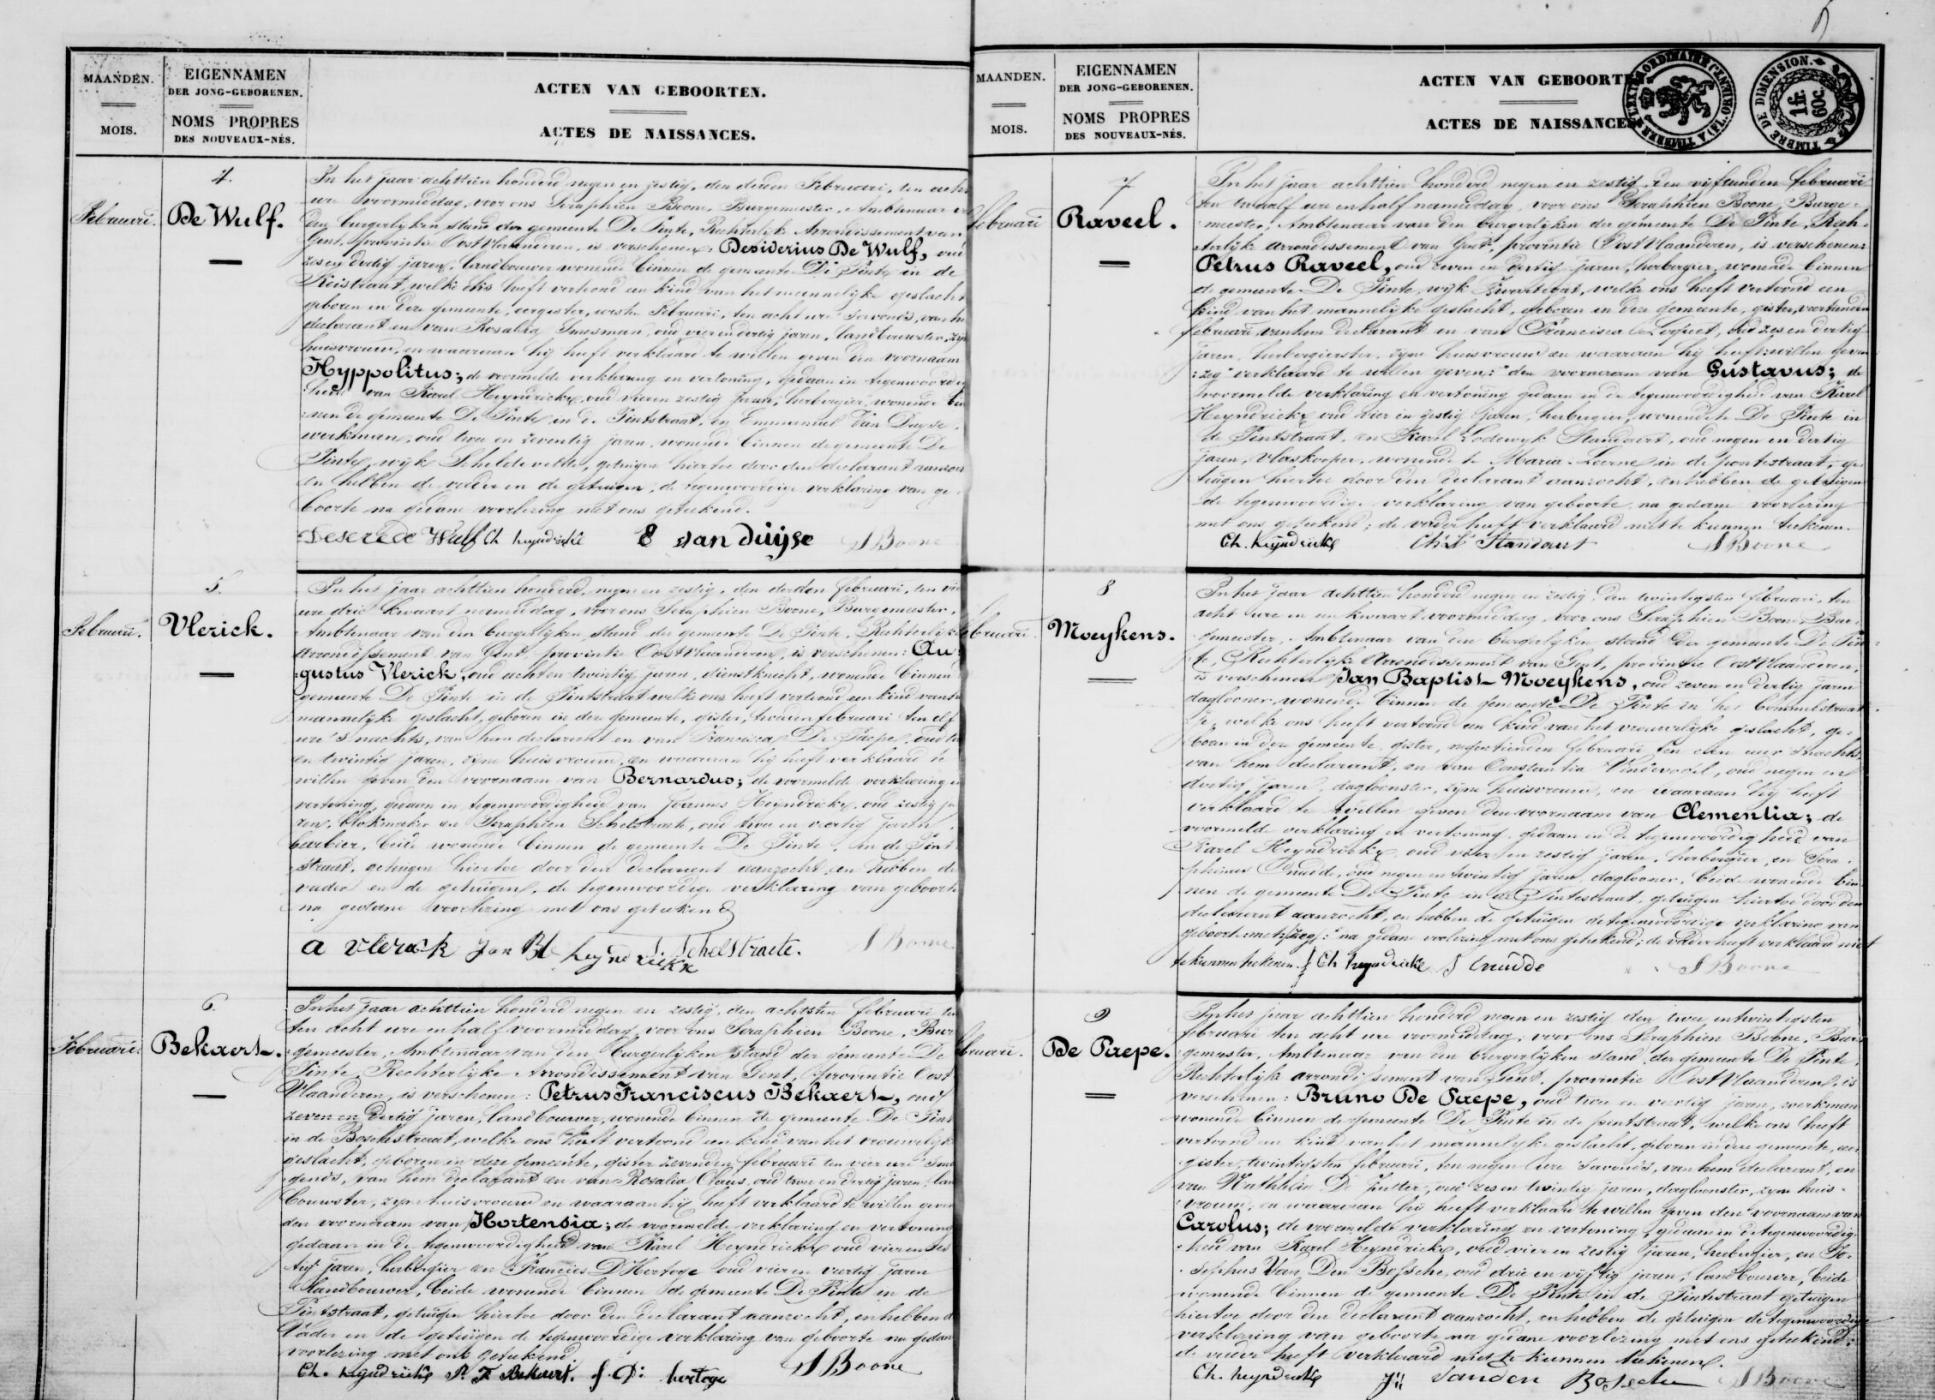 MAANDEN.
MOIS.
EIGENNAMEN
DER JONG-GEBORENEN.
NOMS PROPRES
DES NOUVEAUX-NÉS.
ACTEN VAN GEBOORTEN.
ACTES DE NAISSANCES.
4.
Februari.
De Wulf.
In het jaar achttien honderd negen en zestig, den derden Februari, ten acht
ure voormiddag, voor ons Seraphien Boone, Burgemeester, Ambtenaar van
den burgerlyken stand der gemeente De Pinte, Rechterlyk Arrondissement van
Gent, provintie Oost Vlaanderen, is verschenen: Desiderius De Wulf, oud
zes en dertig jaren, landbouwer wonende binnen de gemeente De Pinte in de
welke ons heeft vertoond een kind van het mannelyke geslacht
geboren in deze gemeente, eergister, eersten Februari, ten acht ure 's avonds, van hem
declarant en van Rosalia oud vier en dertig jaren, landbouwster, zyn
huisvrouw, en waaraan hy heeft verklaard te willen geven den voornaam
Hyppolitus; de voormelde verklaring en vertoning, gedaan in tegenwoordig
heid van Karel Heyndrickx, oud vier en zestig jaren, herbergier, wonende bin
nen de gemeente De Pinte in de Pintstraat, en Emmanuel Van Duyse,
werkman, oud twee en zeventig jaren, wonende binnen de gemeente De
Pinte, wyk Scheldevelde, getuigen hiertoe door den declarant aanzocht
en hebben de vader en de getuigen, de tegenwoordige verklaring van ge-
boorte na gedane voorlezing met ons geteekend.
Wulf Ch heyndrickx E van duijse S Boone
5.
Februari.
Vlerick.
In het jaar achttien honderd negen en zestig, den derden februari, ten
ure drie kwaart namiddag, voor ons Seraphien Boone, Burgemeester,
Ambtenaar van den burgerlyken stand der gemeente De Pinte, Rechterlyk
Arrondissement van Gent, provintie Oost Vlaanderen, is verschenen: Au-
gustus Vlerick, oud acht en twintig jaren, dienstknecht, wonende binnen
gemeente De Pinte in de Pintstraat welke ons heeft vertoond een kind van het
mannelyke geslacht, geboren in deze gemeente, gister, tweeden februari ten elf
ure 's nachts, van hem declarant en van Francisca De Paepe, oud
en twintig jaren, zyne huisvrouw, en waaraan hy heeft verklaard te
willen geven den voornaam van Bernardus; de voormelde verklaring en
vertoning gedaan in tegenwoordigheid van Joannes Heyndrickx, oud zestig ja-
ren, blokmaker en Seraphien Schelstraete, oud twee en veertig jaren,
barbier, beide wonende binnen de gemeente De Pinte, in de Pint-
straat, getuigen hiertoe door den declarant aanzocht en hebben de
vader en de getuigen, de tegenwoordige verklaring van geboorte
na gedane voorlezing met ons geteekend
a vlerick Jan Bt heyndrickx S. Schelstraete. S Boone
6.
Februari.
Bekaert.
In het jaar achttien honderd negen en zestig, den achtsten februari
ten acht ure en half voormiddag, voor ons Seraphien Boone, Bur-
gemeester, Ambtenaar van den burgerlyken stand der gemeente De
Pinte, Rechterlyke Arrondissement van Gent, provintie Oost
Vlaanderen, is verschenen: Petrus Franciscus Bekaert, oud
zeven en dertig jaren, landbouwer, wonende binnen de gemeente De Pinte
in de Boschstraat, welke ons heeft vertoond een kind van het vrouwelyk
geslacht, geboren in deze gemeente, gister zevenden februari ten vier ure
van hem declarant en van Rosalia Claus, oud twee en dertig jaren, land-
bouwster, zyn huisvrouw en waaraan hy heeft verklaard te willen geven
den voornaam van Hortensia; de voormelde verklaring en vertoning
gedaan in de tegenwoordigheid van Karel Heyndrickx oud vier en zes-
tig jaren, herbergier en Francies D'Hertoge oud vier en veertig jaren
Landbouwer, beide wonende binnen de gemeente De Pinte in de
Pintstraat, getuigen hiertoe door den declarant aanzocht, en hebben de
Vader en de getuigen de tegenwoordige verklaring van geboorte na gedane
voorlezing met ons geteekend
Ch. heyndrickx P. F Bekaert. f. D: hertoge S Boone
MAANDEN.
MOIS.
EIGENNAMEN
DER JONG-GEBORENEN.
NOMS PROPRES
DES NOUVEAUX-NÉS.
ACTEN VAN GEBOORT
ACTES DE NAISSANCES
TIMBRE DE DIMENSION.
1 fr. 60c.
7
Februari
Raveel.
In het jaar achttien honderd negen en zestig, den vyftienden februari
ten twaalf ure en half namiddag, voor ons Seraphien Boone, Burge-
meester, Ambtenaar van den burgerlyken der gemeente De Pinte, Rech-
terlyk arrondissement van Gent, provintie Oost Vlaanderen, is verschenen:
Petrus Raveel, oud zeven en dertig jaren, herbergier, wonende binnen
de gemeente De Pinte, wyk welke ons heeft vertoond een
kind van het mannelyke geslacht, geboren in deze gemeente, gister, veertienden
februari van hem declarant en van Francisca oud zes en dertig
jaren, herbergierster, zyne huisvrouw en waaraan hy heeft: willen geven
:zeg: verklaard te willen geven: den voornaam van Gustavus; de
voormelde verklaring en vertoning gedaan in de tegenwoordigheid van Karel
Heyndrickx oud vier en zestig jaren, herbergier, wonende te De Pinte in
de Pintstraat, en Karel Lodewyk Standaert, oud negen en dertig
jaren, vlaskooper, wonende te Maria-Leerne in de pontestraat, ge-
tuigen hiertoe door den declarant aanzocht, en hebben de getuigen
de tegenwoordige verklaring van geboorte, na gedane voorlezing
met ons geteekend; de vader heeft verklaard niet te kunnen teekenen.
Ch. heyndrickx Ch. L. Standaert S Boone
8
Februari.
Moeykens.
In het jaar achttien honderd negen en zestig den twintigsten februari, ten
acht ure en een kwaart voormiddag, voor ons Seraphien Boone, Bur-
gemeester, Ambtenaar van den burgerlyken stand der gemeente De Pin-
te, Rechterlyke Arrondissement van Gent, provintie Oost Vlaanderen,
is verschenen Jan Baptist Moeykens, oud zeven en dertig jaren
daglooner, wonende binnen de gemeente De Pinte in het
welke ons heeft vertoond een kind van het vrouwelyke geslacht, ge-
boren in deze gemeente, gister, negentienden februari ten elf ure 's nachts
van hem declarant, en van Constantia Vindevogel, oud negen en
dertig jaren, daglooster, zyne huisvrouw, en waaraan hy heeft
verklaard te willen geven den voornaam van Clementia; de
voormelde verklaring en vertoning gedaan in de tegenwoordigheid van
Karel Heyndrickx, oud vier en zestig jaren, herbergier, en Sera-
phinus oud negen en twintig jaren daglooner, beide wonende bin-
nen de gemeente De Pinte in de Pintestraat, getuigen hiertoe door den
declarant aanzocht, en hebben de getuigen de tegenwoordige verklaring van
geboorte na gedane voorlezing met ons geteekend; de vader heeft verklaard niet
te kunnen teekenen. Ch heyndrickx S Boone
9
Februari.
De Paepe.
In het jaar achttien honderd negen en zestig den twee en twintigsten
februari ten acht ure voormiddag, voor ons Seraphien Boone, Bur-
gemeester, Ambtenaar van den burgerlyken stand der gemeente De Pinte,
Rechterlyk arrondissement van Gent, provintie Oost Vlaanderen, is
verschenen: Bruno De Paepe, oud twee en veertig jaren, werkman
wonende binnen de gemeente De Pinte in de pintstraat, welke ons heeft
vertoond een kind van het mannelyke geslacht, geboren in deze gemeente, eer-
gister, twintigsten februari, ten negen ure 's avonds, van hem declarant, en
van Mathilda De oud zes en twintig jaren, daglooster, zyn huis-
vrouw, en waaraan hy heeft verklaard te willen geven den voornaam van
Carolus; de voormelde verklaring en vertoning, gedaan in de tegenwoordig-
heid van Karel Heyndrickx, oud vier en zestig jaren, herbergier, en Jo-
sephus Van Den Bossche, oud drie en vyftig jaren, landbouwer, beide
wonende binnen de gemeente De Pinte in de Pintestraat getuigen
hiertoe door den declarant aanzocht, en hebben de getuigen de tegenwoordige
verklaring van geboorte na gedane voorlezing met ons geteekend;
de vader heeft verklaard niet te kunnen teekenen.
Ch. heyndrickx Js Vanden Bossche S Boone